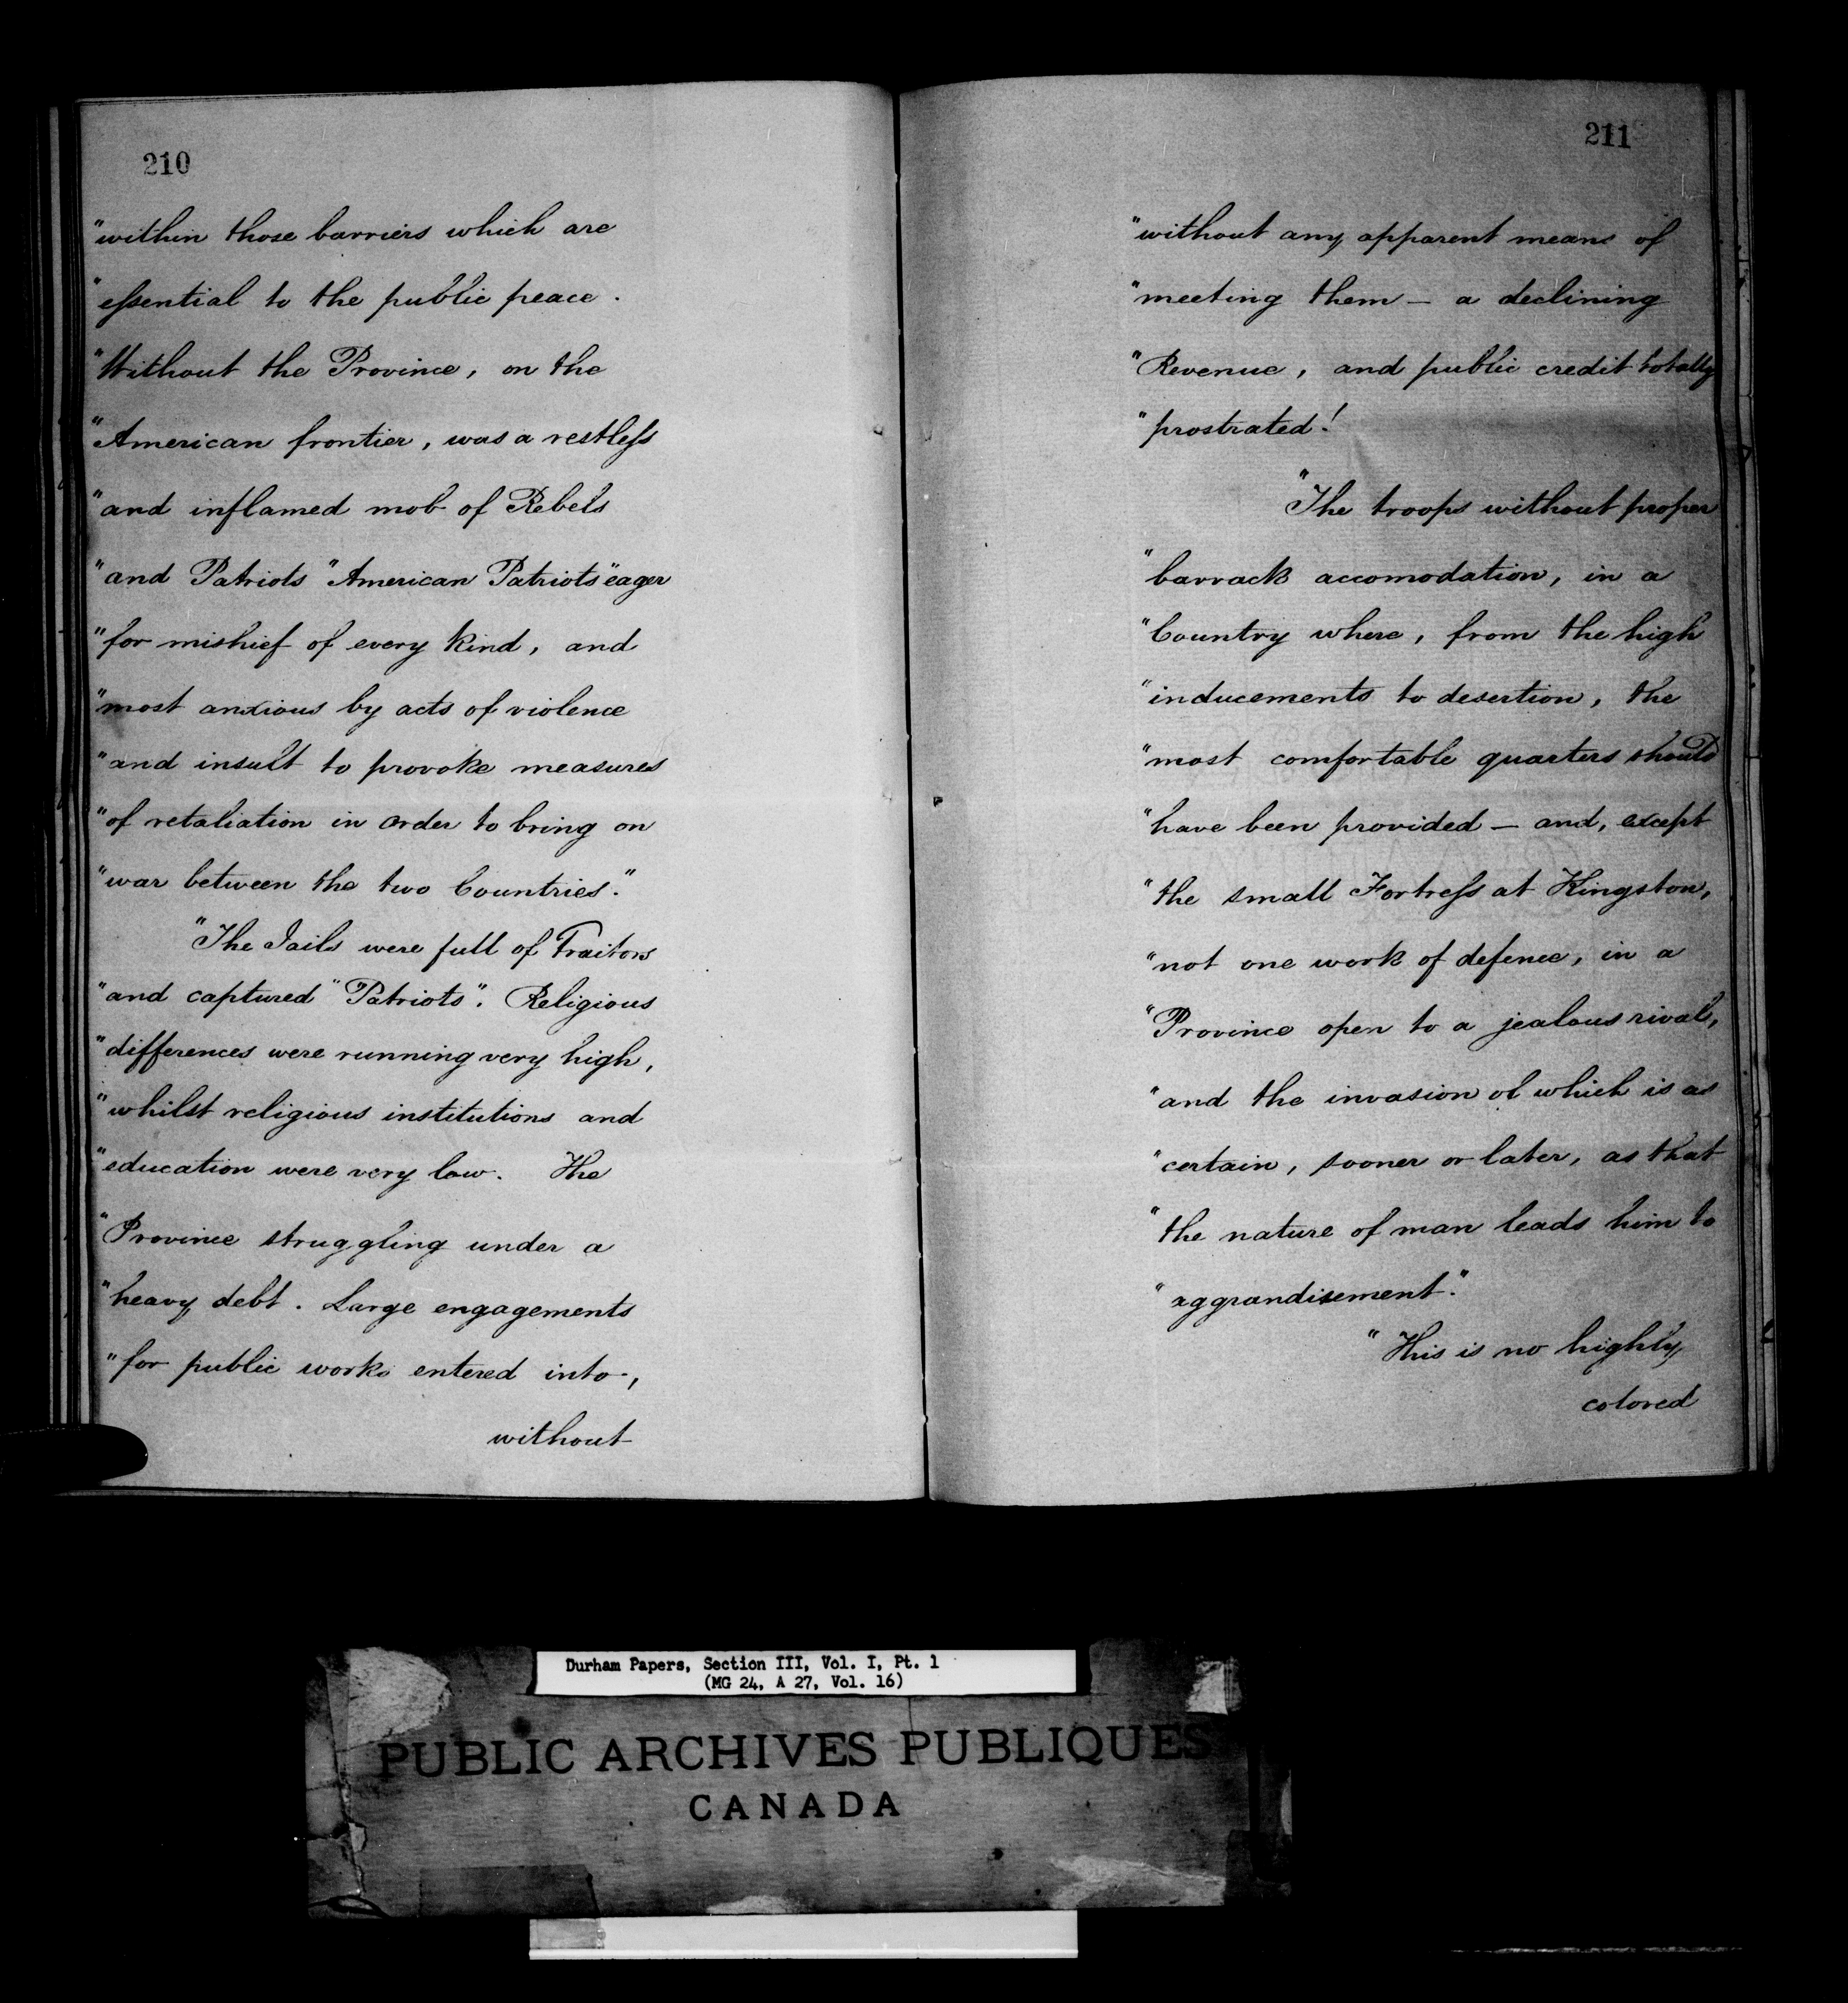 210
"within those barriers which are
"essential to the public peace.
"Without the Province, on the
"American frontier, was a restless
"and inflamed mob of Rebels
"and Patriots "American Patriots" eager
"for mishief of every kind, and
"most anxious by acts of violence
"and insult to provoke measures
"of retaliation in order to bring on
"war between the two Countries."
"The Jails were full of Traitors
"and captured "Patriots". Religious
"differences were running very high,
"whilst religious institutions and
"education were very low. The
"Province struggling under a
"heavy debt. Large engagements
"for public works entered into,
without
211
"without any apparent means of
"meeting them — a declining
"Revenue, and public credit totally
"prostrated!
"The troops without proper
"barrack accomodation, in a
"Country where, from the high
"inducements to desertion, the
"most comfortable quarters should
"have been provided — and, except
"the small Fortress at Kingston,
"not one work of defence, in a
"Province open to a jealous rival,
"and the invasion of which is as
"certain, sooner or later, as that
"the nature of man leads him to
"aggrandisement."
"This is no highly
colored
Durham Papers, Section III, Vol. I, Pt. 1
(MG 24, A 27, Vol. 16)
PUBLIC ARCHIVES PUBLIQUES
CANADA